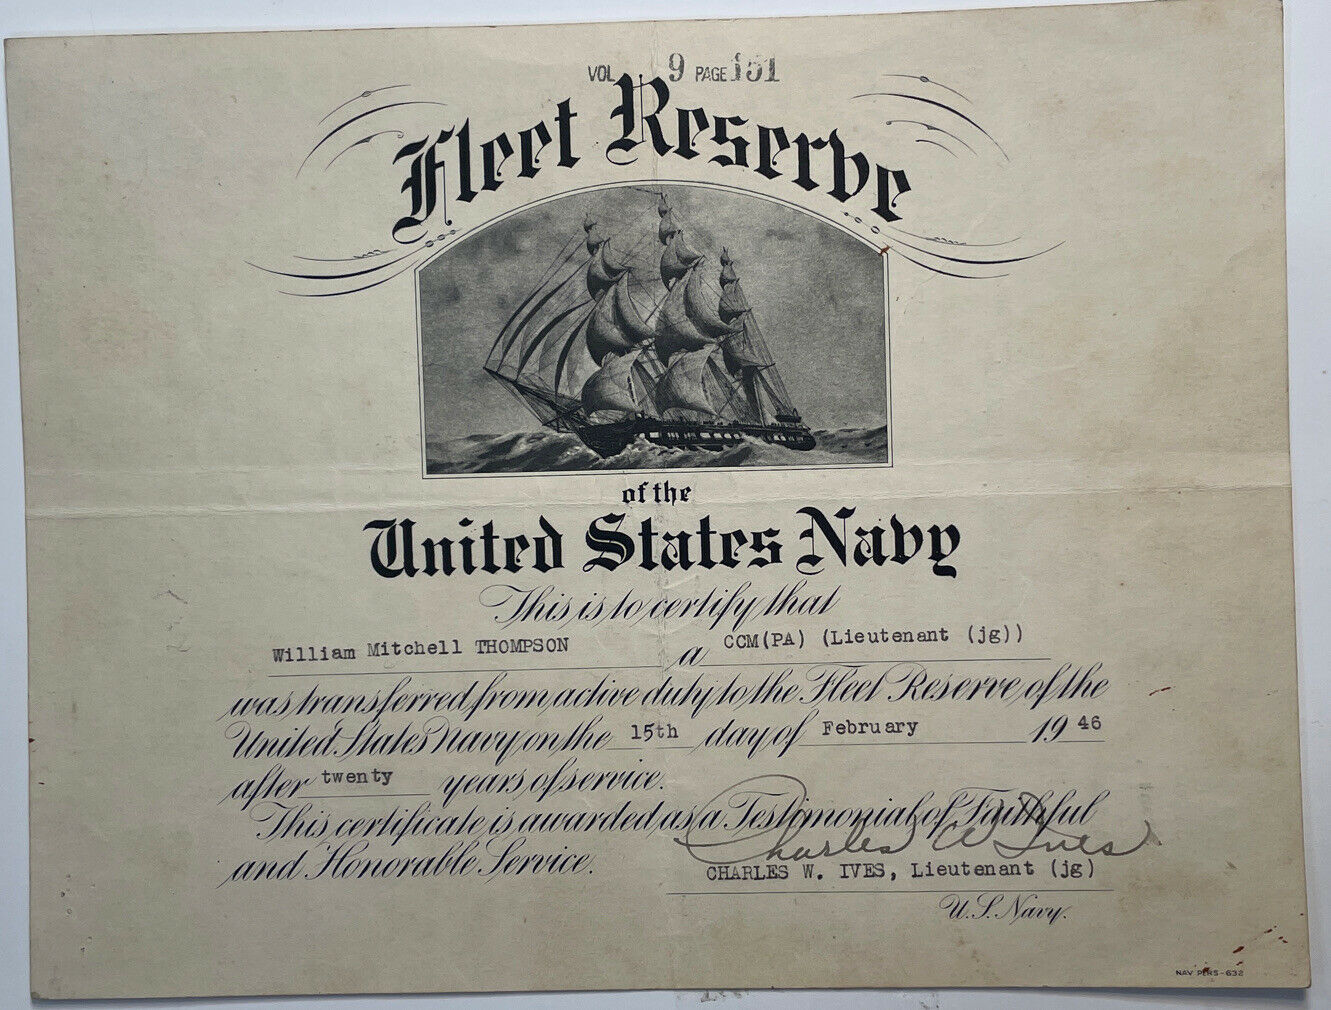 VOL 9 PAGE 151
Fleet Reserve
of the
United States Navy
This is to certify that
William Mitchell THOMPSON a CCM(PA) (Lieutenant (jg))
was transferred from active duty to the Fleet Reserve of the
United States Navy on the 15th day of February 19 46
after twenty years of service.
This certificate is awarded as a Testimonial of Faithful
and Honorable Service.
Charles W Ives
CHARLES W. IVES, Lieutenant (jg)
U.S. Navy.
NAV PERS-632